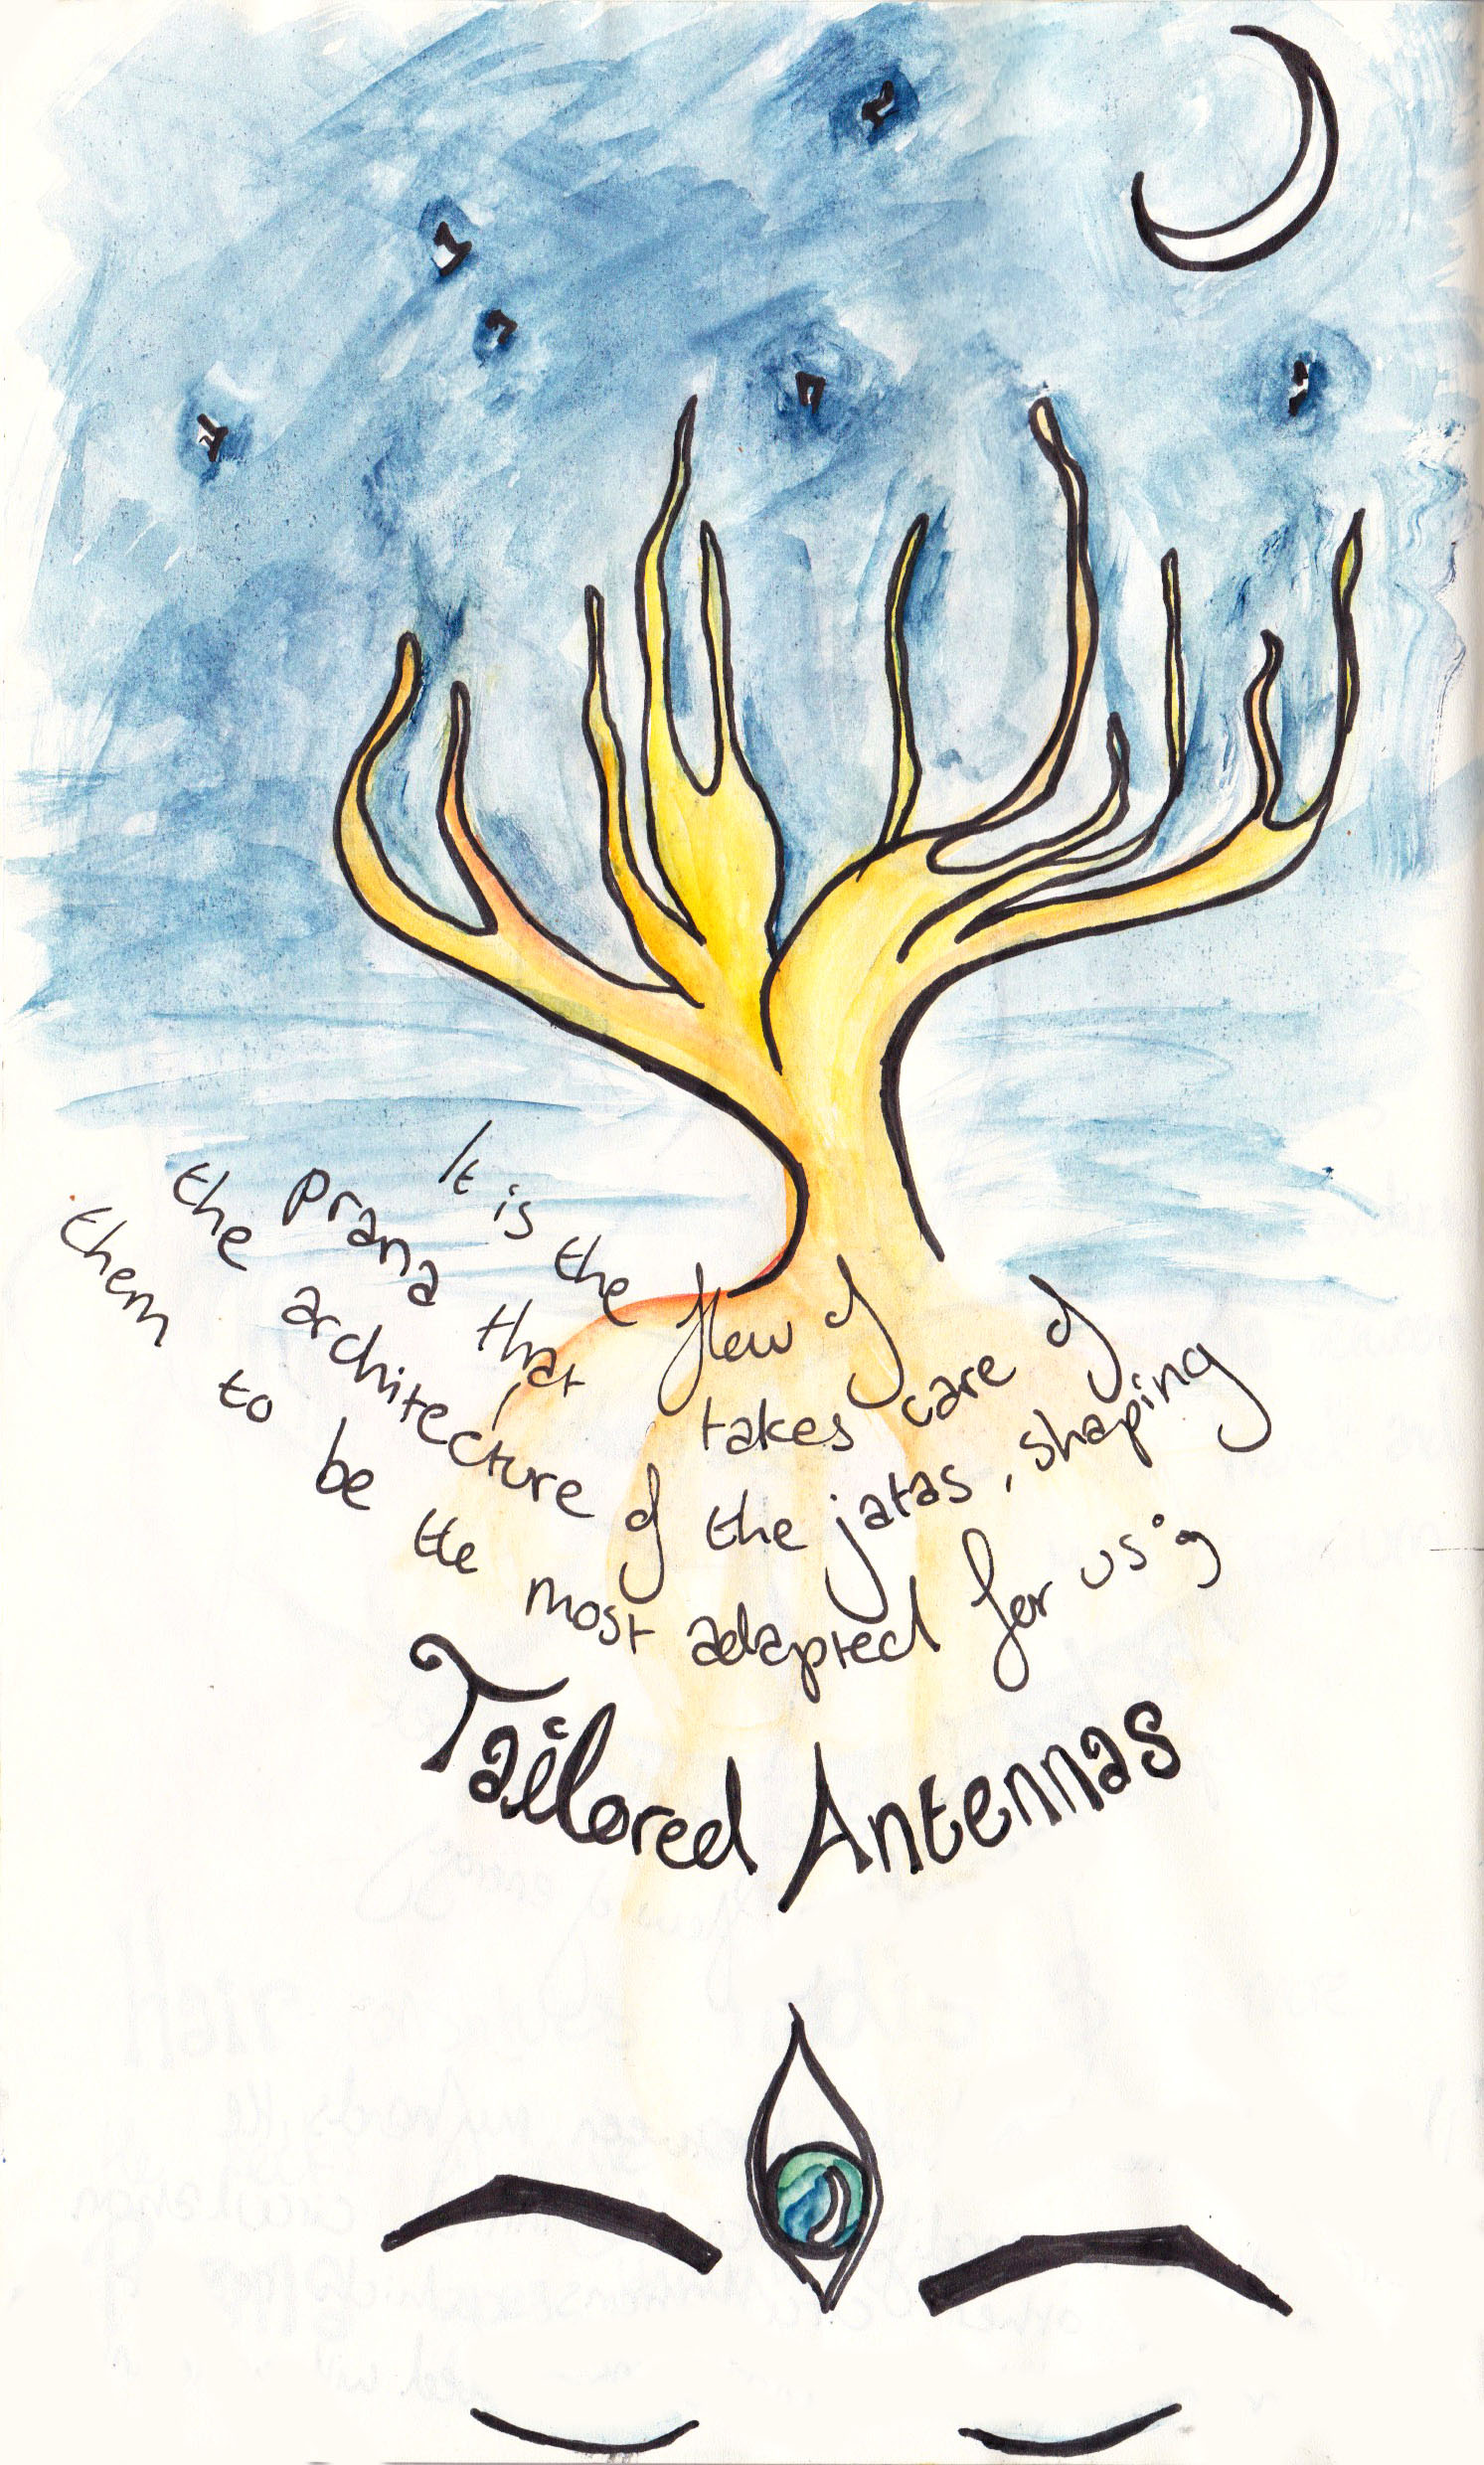 It is the flow of
prana that takes care of
the architecture of the jatas, shaping
them to be the most adapted for us :
Tailored Antennas